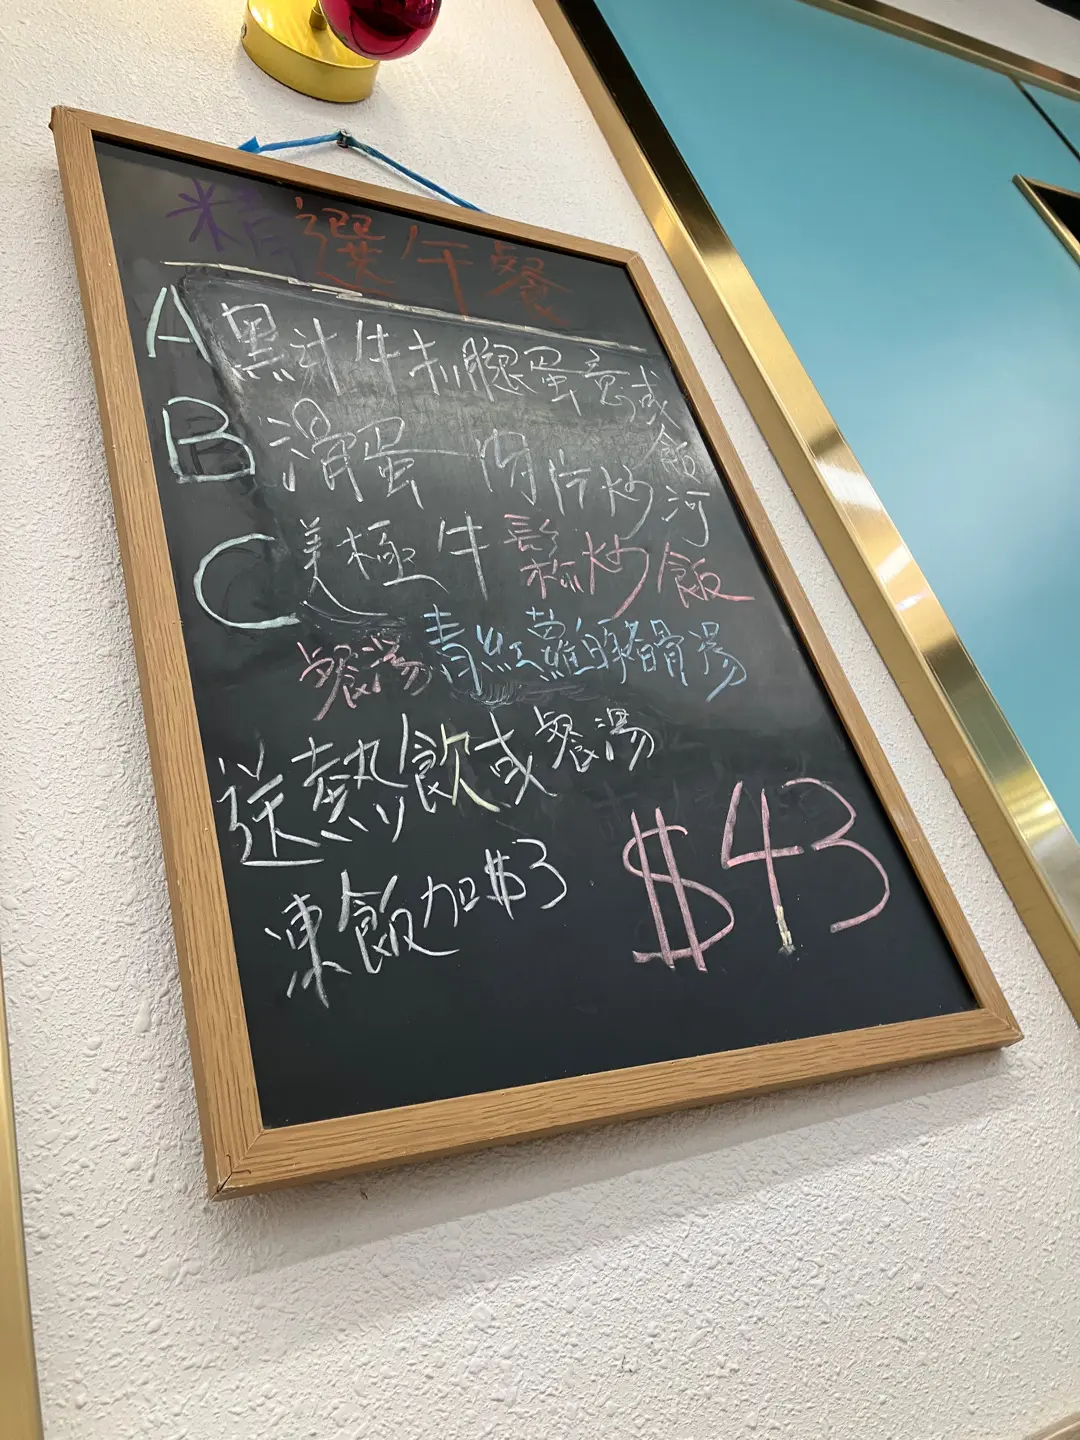 精選午餐
A 黑汁牛扒腿蛋意或飯
B 滑蛋肉片炒河
C 美極牛鬆炒飯
餐湯 青紅蘿蔔豬骨湯
送熱飲或餐湯
凍飲加$3
$43